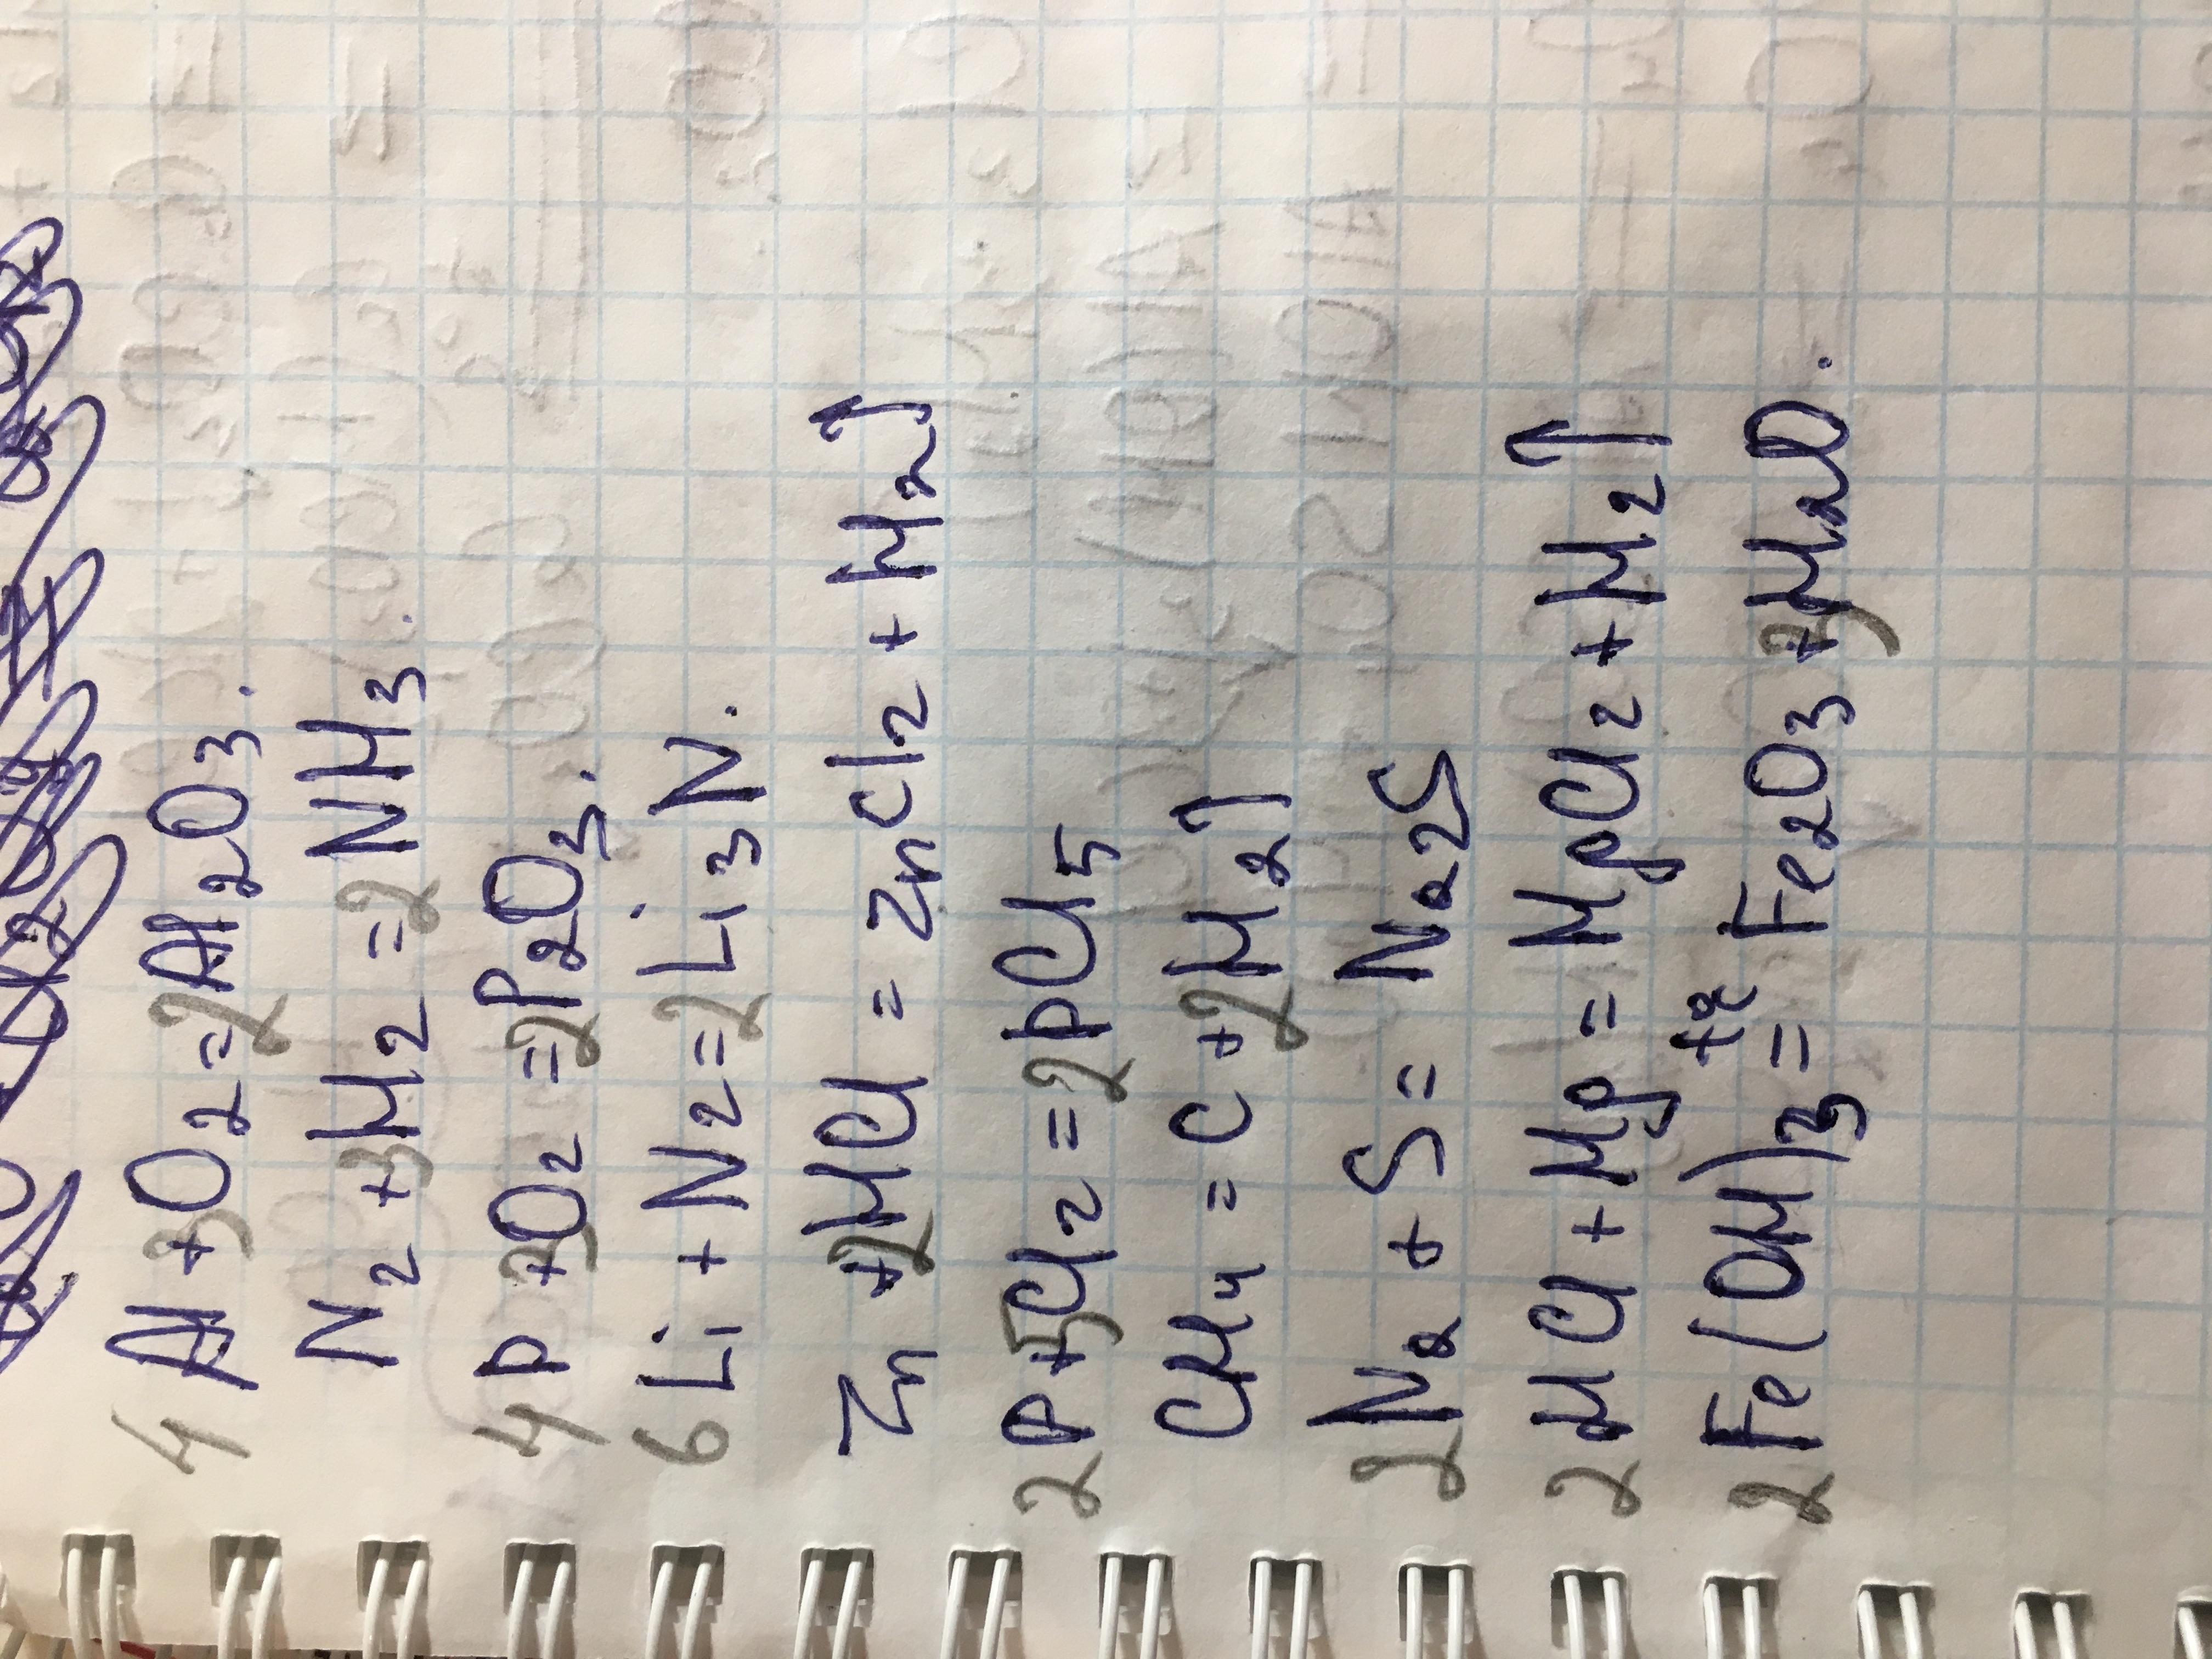 4Al + 3O2 = 2Al2O3.
N2 + 3H2 = 2NH3.
4P + 3O2 = 2P2O3.
6Li + N2 = 2Li3N.
Zn + 2HCl = ZnCl2 + H2↑
2P + 5Cl2 = 2PCl5
CH4 = C + 2H2↑
2Na + S = Na2S
2HCl + Mg = MgCl2 + H2↑
2Fe(OH)3 = t° Fe2O3 + 3H2O.